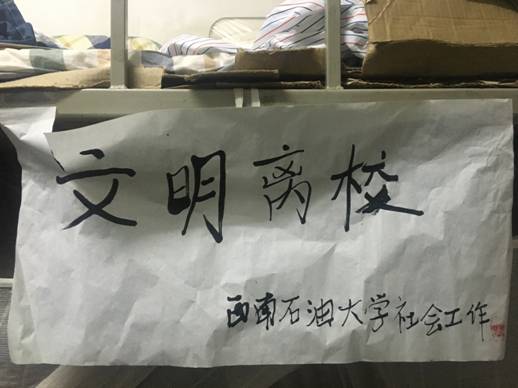 文明离校
西南石油大学社会工作